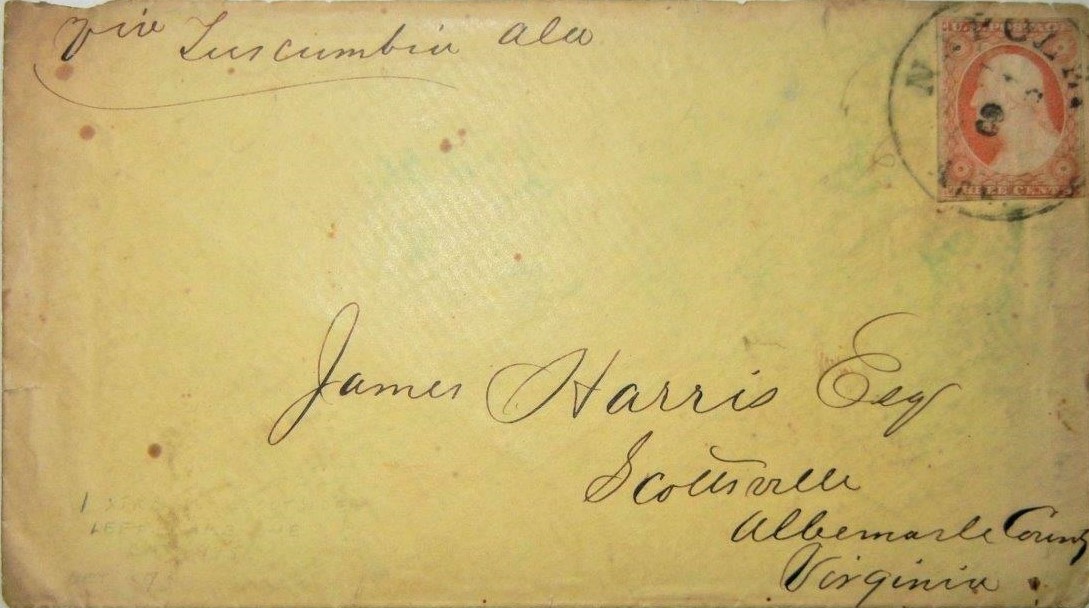 via Tuscumbia Ala
THREE CENTS
James Harris Esq
Scottsville
Albemarle County
Virginia